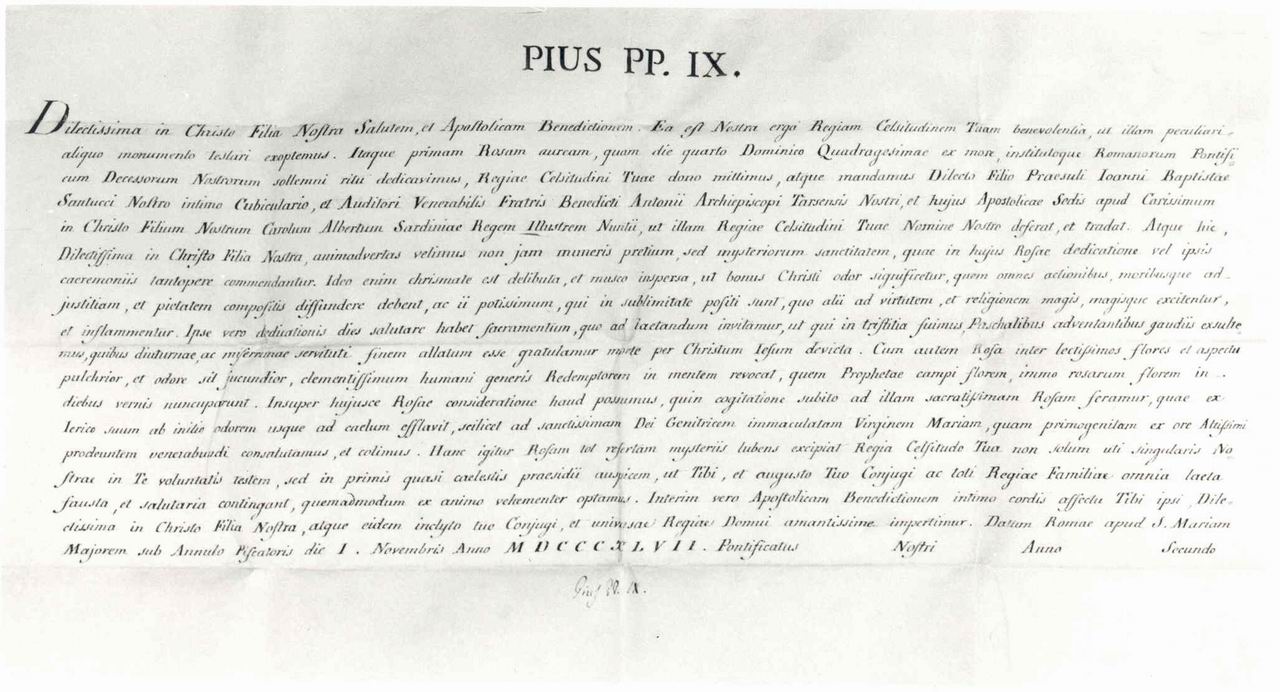 PIUS PP. IX.
Dilectissima in Christo Filia Noſtra Salutem, et Apoſtolicam Benedictionem. Ea eſt Noſtra erga Regiam Celsitudinem Tuam benevolentia, ut illam peculiari
aliquo monumento testari exoptemus. Itaque primam Rosam auream, quam die quarto Dominico Quadragesimae ex more, institutoque Romanorum Pontifi
cum Decessorum Nostrorum sollemni ritu dedicavimus, Regiae Celsitudini Tuae dono mittimus, atque mandamus Dilecto Filio Praesuli Ioanni Baptistae
Santucci Noſtro intimo Cubiculario, et Auditori Venerabilis Fratris Benedicti Antonii Archiepiscopi Tarsensis Noſtri, et hujus Apoſtolicae Sedis apud Carissimum
in Christo Filium Nostrum Carolum Albertum Sardiniae Regem Illustrem Nuntii, ut illam Regiae Celsitudini Tuae Nomine Noſtro deferat, et tradat. Atque hic,
Dilectiſsima in Chriſto Filia Noſtra, animadvertas velimus non jam muneris pretium, sed mysteriorum sanctitatem, quae in hujus Roſae dedicatione vel ipsis
caeremoniis tantopere commendantur. Ideo enim chrismate est delibuta, et musco inspersa, ut bonus Christi odor significetur, quem omnes actionibus, moribusque ad
juſtitiam, et pietatem compositis diffundere debent, ac ii potissimum, qui in sublimitate poſiti sunt, quo alii ad virtutem, et religionem magis, magisque excitentur,
et inflammentur. Ipse vero dedicationis dies salutare habet ſacramentum, quo ad laetandum invitamur, ut qui in triſtitia fuimus, Paschalibus adventantibus gaudiis exulte
mus, quibus diuturnae, ac miſerrimae servituti finem allatum esse gratulamur morte per Christum Iesum devicta. Cum autem Roſa inter lectiſsimos flores et aspectu
pulchrior, et odore sit jucundior, clementiſsimum humani generis Redemptorem in mentem revocat, quem Prophetae campi florem, immo rosarum florem in
diebus vernis nuncuparunt. Insuper hujusce Roſae consideratione haud possumus, quin cogitatione subito ad illam sacratiſsimam Rosam feramur, quae ex
Ierico suum ab initio odorem usque ad caelum efflavit, scilicet ad sanctissimam Dei Genitricem immaculatam Virginem Mariam, quam primogenitam ex ore Altiſsimi
prodeuntem venerabundi consalutamus, et colimus. Hanc igitur Roſam tot refertam mysteriis lubens excipiat Regia Celsitudo Tua non solum uti singularis No
ſtrae in Te voluntatis testem, sed in primis quasi caelestis praesidii auspicem, ut Tibi, et augusto Tuo Conjugi ac toti Regiae Familiae omnia laeta
fausta, et salutaria contingant, quemadmodum ex animo vehementer optamus. Interim vero Apoſtolicam Benedictionem intimo cordis affectu Tibi ipsi, Dile
ctissima in Christo Filia Noſtra, atque eidem inclyto tuo Conjugi, et universae Regiae Domui amantissime impertimur. Datum Romae apud S. Mariam
Majorem sub Annulo Piſcatoris die I. Novembris Anno MDCCCXLVII. Pontificatus Noſtri Anno Secundo
Pius PP. IX.